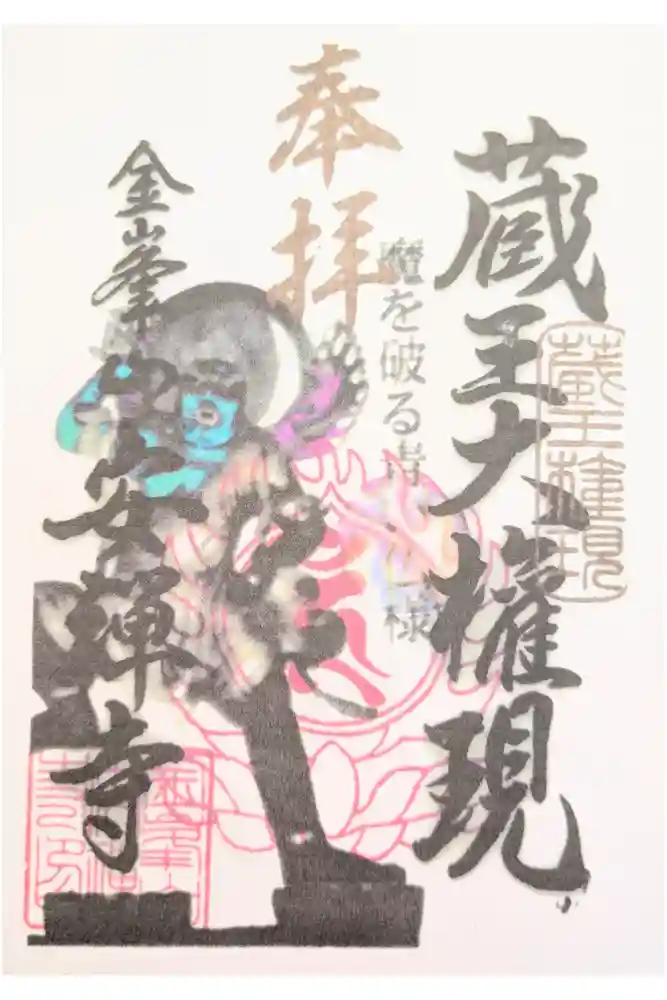 蔵王大権現
蔵王権現
奉拝
魔を破る者
様
金峯
安禅寺